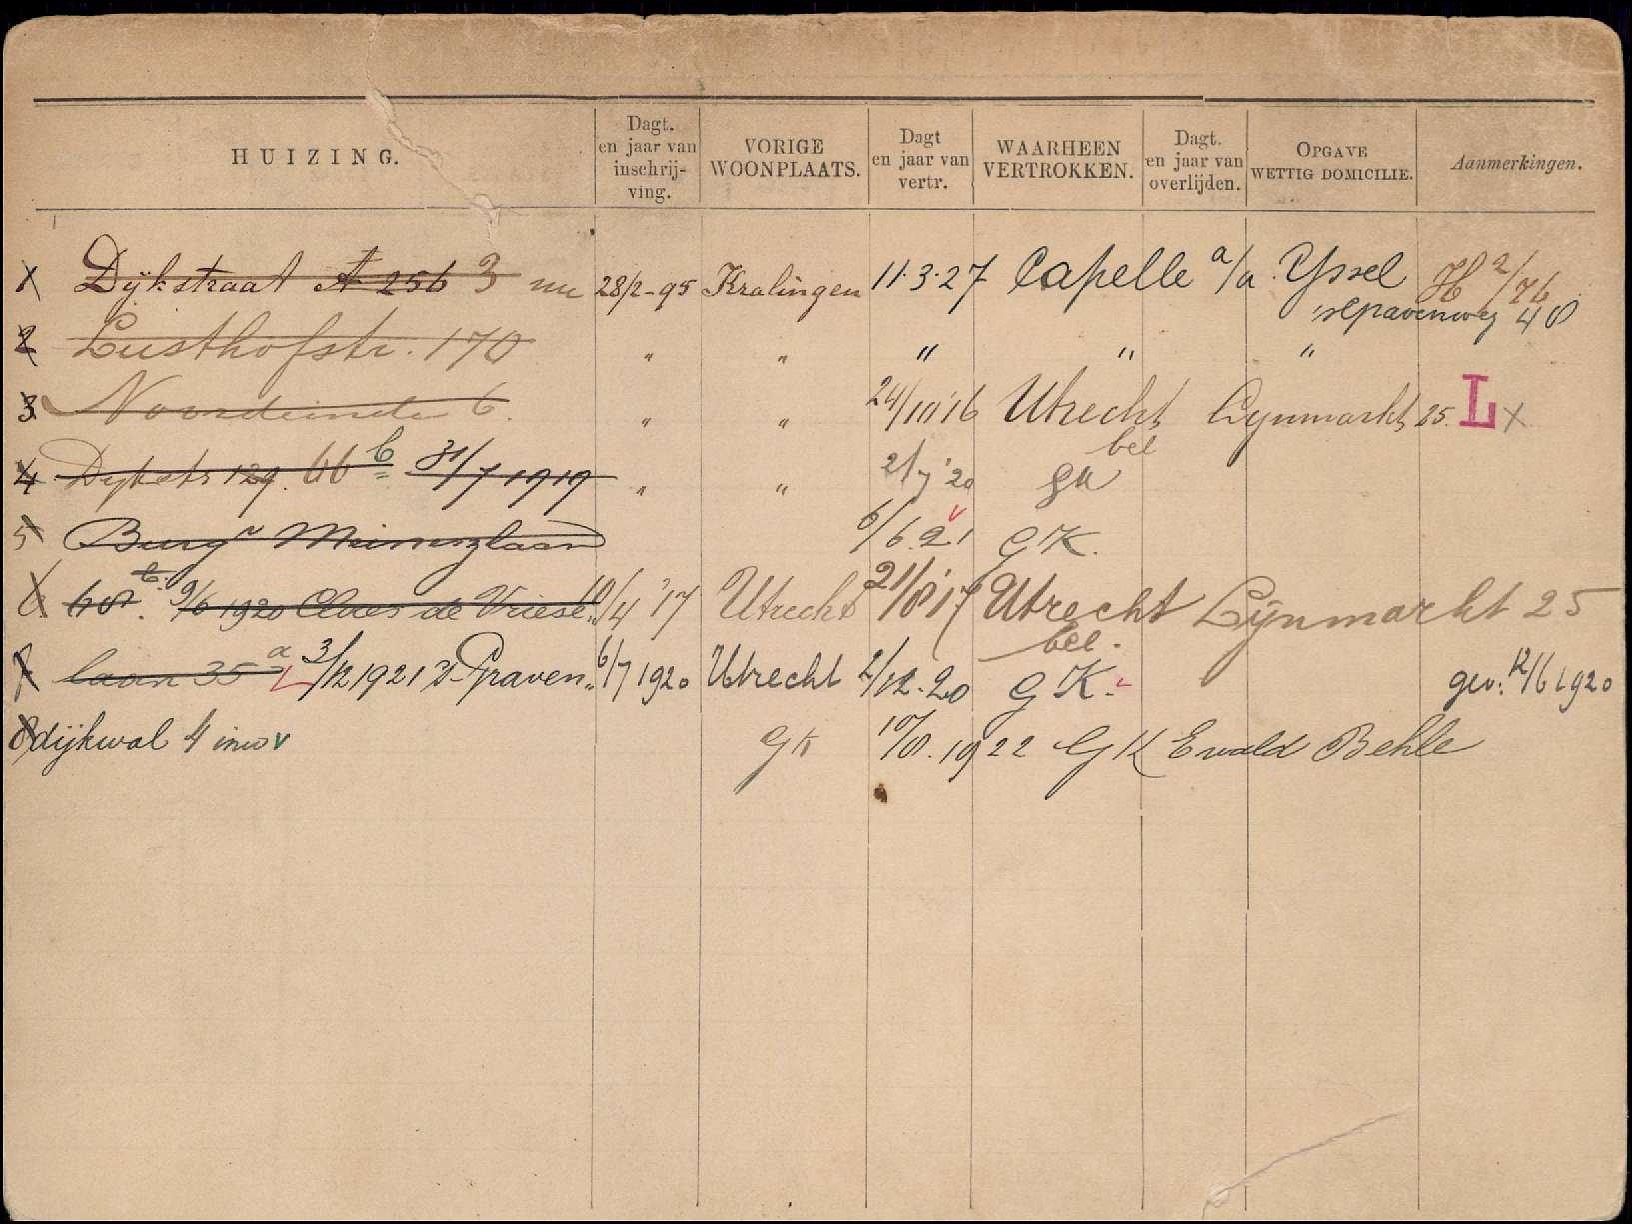 HUIZING. Dagt. en jaar van inschrij-ving. VORIGE WOONPLAATS. Dagt en jaar van vertr. WAARHEEN VERTROKKEN. Dagt. en jaar van overlijden. OPGAVE WETTIG DOMICILIE. Aanmerkingen.
1 Dijkstraat A 256 3 nu 28/2-95 Kralingen 11.3.27 Capelle a/a Yssel H 2/76
'sGravenweg 48
2 Lusthofstr. 170 " " " " "
3 Noordeinde 6. " " 24/10 '16 Utrecht Lynmarkt 25. L x
4 Dijkstr 129. 66 b 31/7 1919 " " 2/7 '20 bel GK
5 Burgr Meineszlaan 6/6.21 GK.
6 68 b. 9/6 1920 Claes de Vriese„ 10/4 '17 Utrecht 21/8 '17 Utrecht Lijnmarkt 25
7 laan 35 a 3/12 1921 's-Graven„ 6/7 1920 Utrecht 2/12.20 bel. GK. gev: 12/6 1920
8 dijkwal 4 inw v GK 10/8.1922 GK Ewald Behle